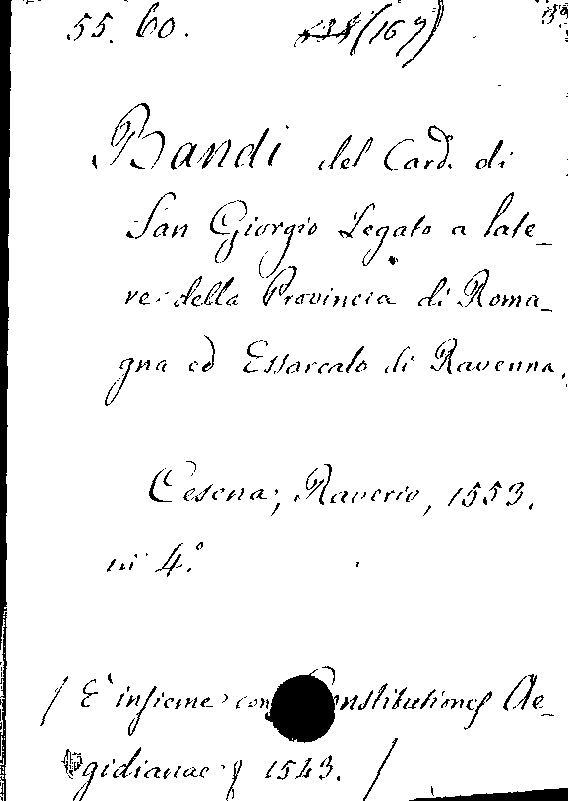 55. 60. (169)
Bandi del Card. di
San Giorgio Legato a late-
re della Provincia di Roma-
gna ed Essarcato di Ravenna.
Cesena, Raverio, 1553.
in 4.°
/ È insieme con Constitutiones Ae-
gidianae 1543. /